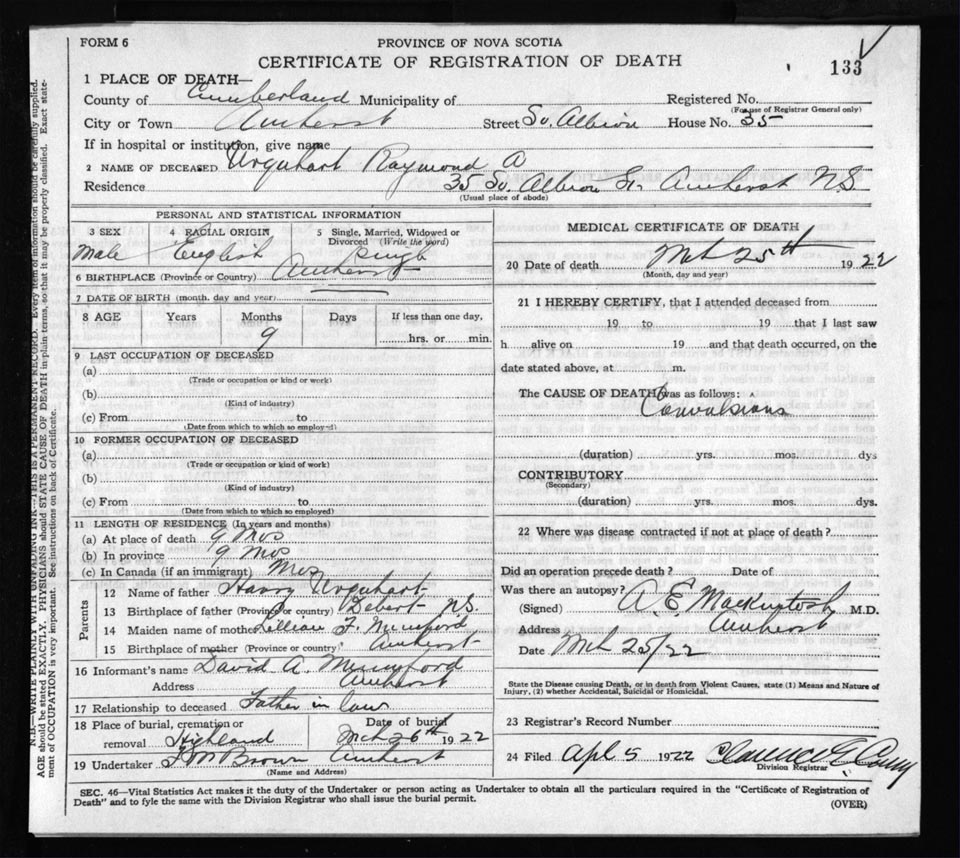 FORM 6
PROVINCE OF NOVA SCOTIA
CERTIFICATE OF REGISTRATION OF DEATH
133
1 PLACE OF DEATH—
County of Cumberland Municipality of
Registered No.
(For use of Registrar General only)
City or Town Amherst Street So. Albion House No. 35
If in hospital or institution, give name
2 NAME OF DECEASED Urquhart Raymond A
Residence 35 So. Albion St. Amherst N.S.
(Usual place of abode)
PERSONAL AND STATISTICAL INFORMATION
3 SEX 4 RACIAL ORIGIN 5 Single, Married, Widowed or Divorced (Write the word)
Male English Single
6 BIRTHPLACE (Province or Country) Amherst
7 DATE OF BIRTH (month, day and year)
8 AGE Years Months Days If less than one day,
9 hrs. or min.
9 LAST OCCUPATION OF DECEASED
(a)
(Trade or occupation or kind or work)
(b)
(Kind of industry)
(c) From to
(Date from which to which so employed)
10 FORMER OCCUPATION OF DECEASED
(a)
(Trade or occupation or kind of work)
(b)
(Kind of industry)
(c) From to
(Date from which to which so employed)
11 LENGTH OF RESIDENCE (In years and months)
(a) At place of death 9 Mos
(b) In province 9 Mos
(c) In Canada (if an immigrant) Mos
Parents
12 Name of father Harry Urquhart
13 Birthplace of father (Province or country) Debert N.S.
14 Maiden name of mother Lillian F. Mumford
15 Birthplace of mother (Province or country) Amherst
16 Informant's name David A
Address Amherst
17 Relationship to deceased Father in law
18 Place of burial, cremation or Date of burial
removal Highland Mch 26th 1922
19 Undertaker Brown Amherst
(Name and Address)
MEDICAL CERTIFICATE OF DEATH
20 Date of death Mch 25th 1922
(Month, day and year)
21 I HEREBY CERTIFY, that I attended deceased from
19 to 19 that I last saw
h alive on 19 and that death occurred, on the
date stated above, at m.
The CAUSE OF DEATH was as follows:
Convulsions
(duration) yrs. mos. dys
CONTRIBUTORY
(Secondary)
(duration) yrs. mos. dys.
22 Where was disease contracted if not at place of death?
Did an operation precede death? Date of
Was there an autopsy?
(Signed) A. E. Mackintosh M.D.
Address Amherst
Date Mch 25/22
State the Disease causing Death, or in death from Violent Causes, state (1) Means and Nature of
Injury, (2) whether Accidental, Suicidal or Homicidal.
23 Registrar's Record Number
24 Filed Apl 5 1922 Clarence E
Division Registrar
SEC. 46—Vital Statistics Act makes it the duty of the Undertaker or person acting as Undertaker to obtain all the particulars required in the "Certificate of Registration of
Death" and to fyle the same with the Division Registrar who shall issue the burial permit.
(OVER)
N.B.—WRITE PLAINLY WITH UNFADING INK—THIS IS A PERMANENT RECORD. Every item of information should be carefully supplied.
AGE should be stated EXACTLY. PHYSICIANS should STATE CAUSE OF DEATH in plain terms, so that it may be properly classified. Exact state-
ment of OCCUPATION is very important. See instructions on back of Certificate.